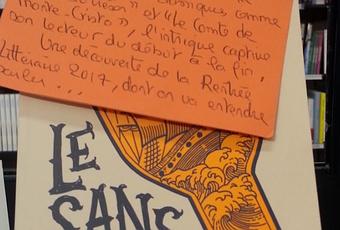 classiques comme
Monte-Cristo", et "Le Comte de
son lecteur du début à la fin,
l'intrigue captive
Une découverte de la Rentrée
Littéraire 2017, dont on va entendre
parler ....
LE
SANS